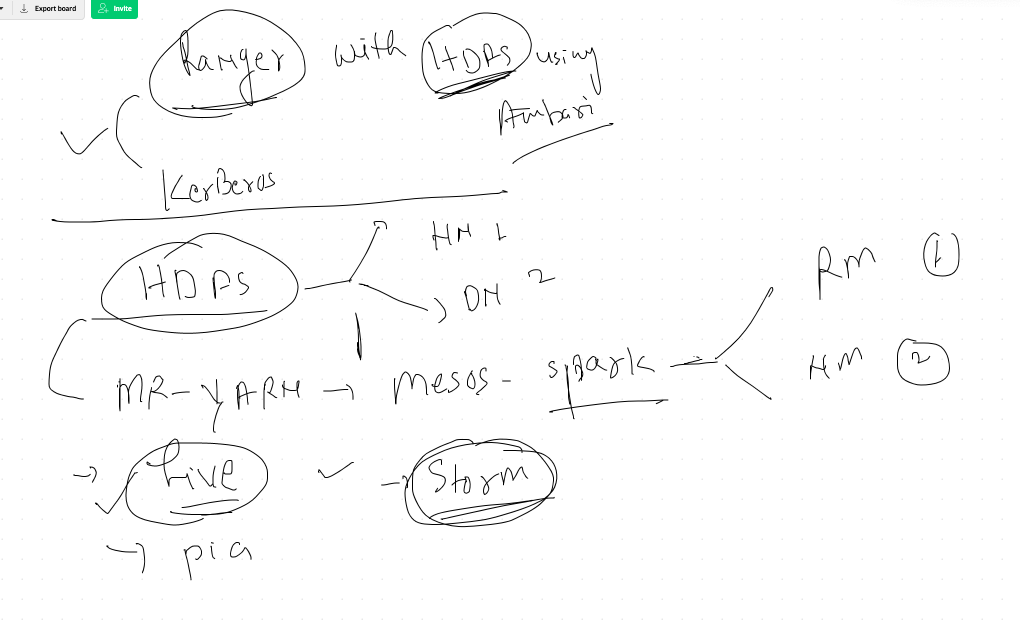 Export board Invite
Ranger with HDFS using
Ambari
KerBeros
HDFS
NN 1
DN 2
RM 1
NM 2
MR - YARN → Mesos - spark
Hive
Storm
pig